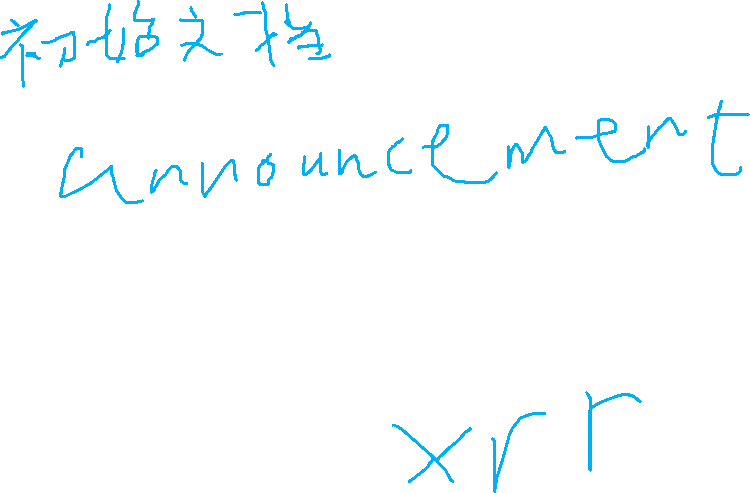 初始文档
announcement
xrr